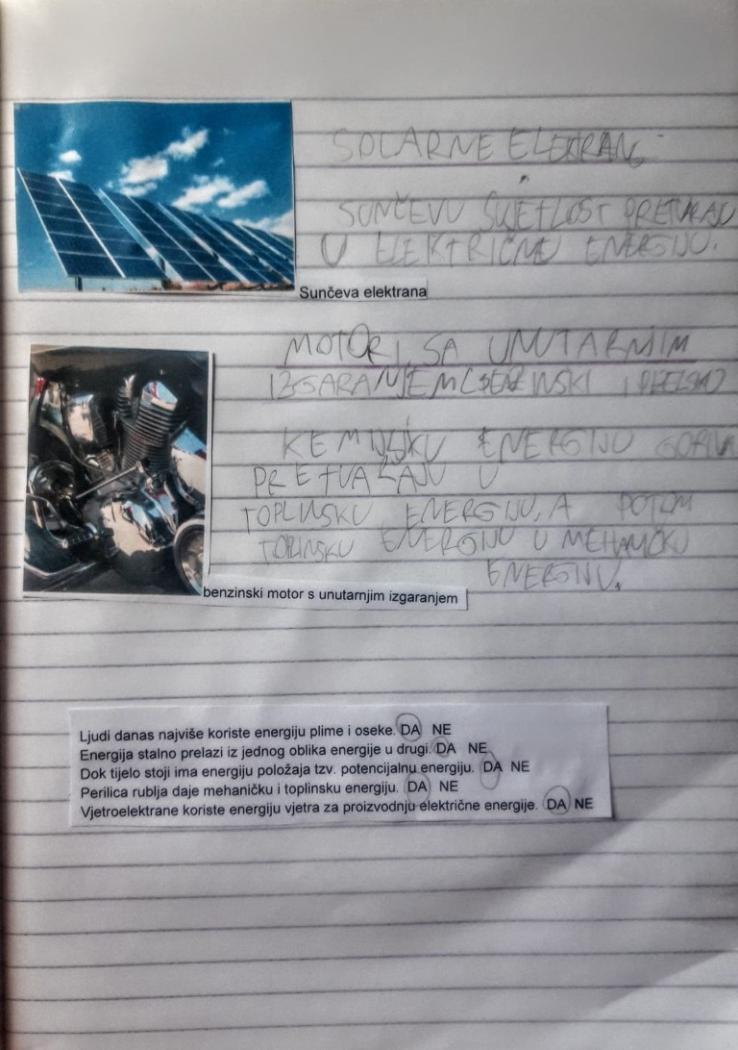 SOLARNE ELEKTRANE
SUNČEVU SVJETLOST PRETVARAJU
U ELEKTRIČNU ENERGIJU.
Sunčeva elektrana
MOTORI SA UNUTARNJIM
IZGARANJEM (BENZINSKI I
KEMIJSKU ENERGIJU GORIVA
PRETVARAJU U
TOPLINSKU ENERGIJU, A POTOM
TOPLINSKU ENERGIJU U MEHANIČKU
ENERGIJU.
benzinski motor s unutarnjim izgaranjem
Ljudi danas najviše koriste energiju plime i oseke. DA NE
Energija stalno prelazi iz jednog oblika energije u drugi. DA NE
Dok tijelo stoji ima energiju položaja tzv. potencijalnu energiju. DA NE
Perilica rublja daje mehaničku i toplinsku energiju. DA NE
Vjetroelektrane koriste energiju vjetra za proizvodnju električne energije. DA NE